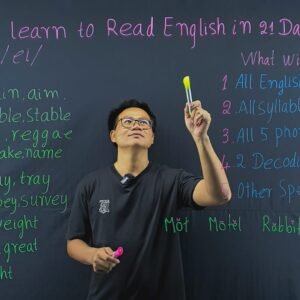 learn to Read English in 21 Da
/eɪ/
What Wi
in, aim
ble, Stable
, reggae
ake, name
ay, tray
bey, Survey
weight
, great
ht
1 All English
2 All syllab
3. All 5 pho
4 2 Decod
5 Other Sp
Mŏt Motel Rabbi